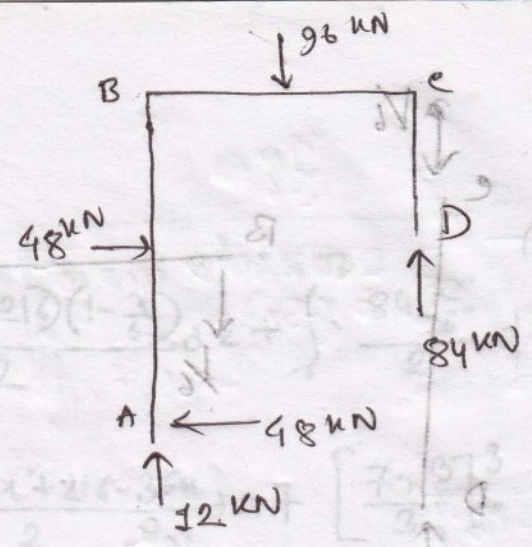 96 KN
B
C
48 KN
D
84 KN
A
48 KN
12 KN